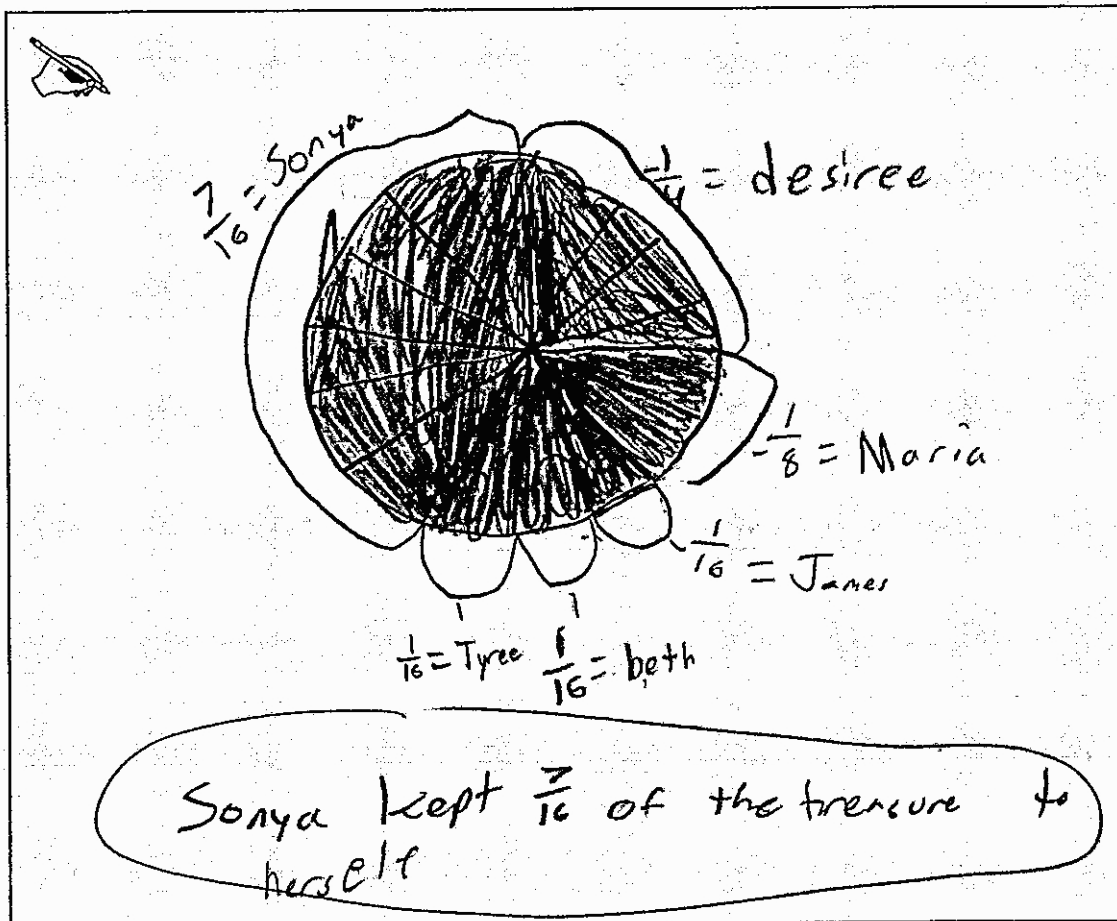 7/16 = Sonya
1/4 = desiree
1/8 = Maria
1/16 = James
1/16 = Tyree
1/16 = beth
Sonya kept 7/16 of the treasure to
herself